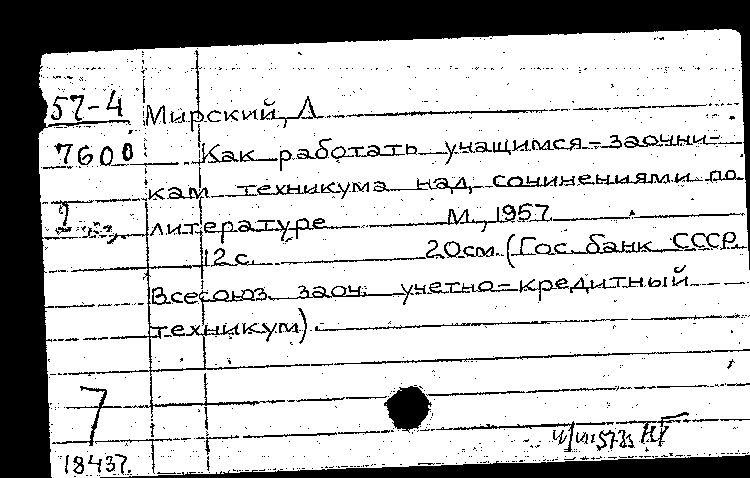 57-4 Мирский, Л
7600 Как работать учащимся-заочни-
кам техникума над сочинениями по
2 экз. литературе М., 1957
12 с. 20 см. (Гос. банк СССР
Всесоюз. заоч. учетно-кредитный
техникум).
7
18437.